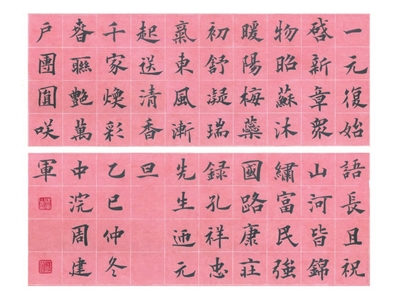 一元復始
啓新章衆
物昭蘇沐
暖陽梅蘂
初舒凝瑞
氣東風漸
起送清香
千家煥彩
春聯艷萬
戶團圓咲
語長且祝
山河皆錦
繡富民強
國路康莊
錄孔祥忠
先生迎元
旦
乙巳仲冬
中浣周建
軍